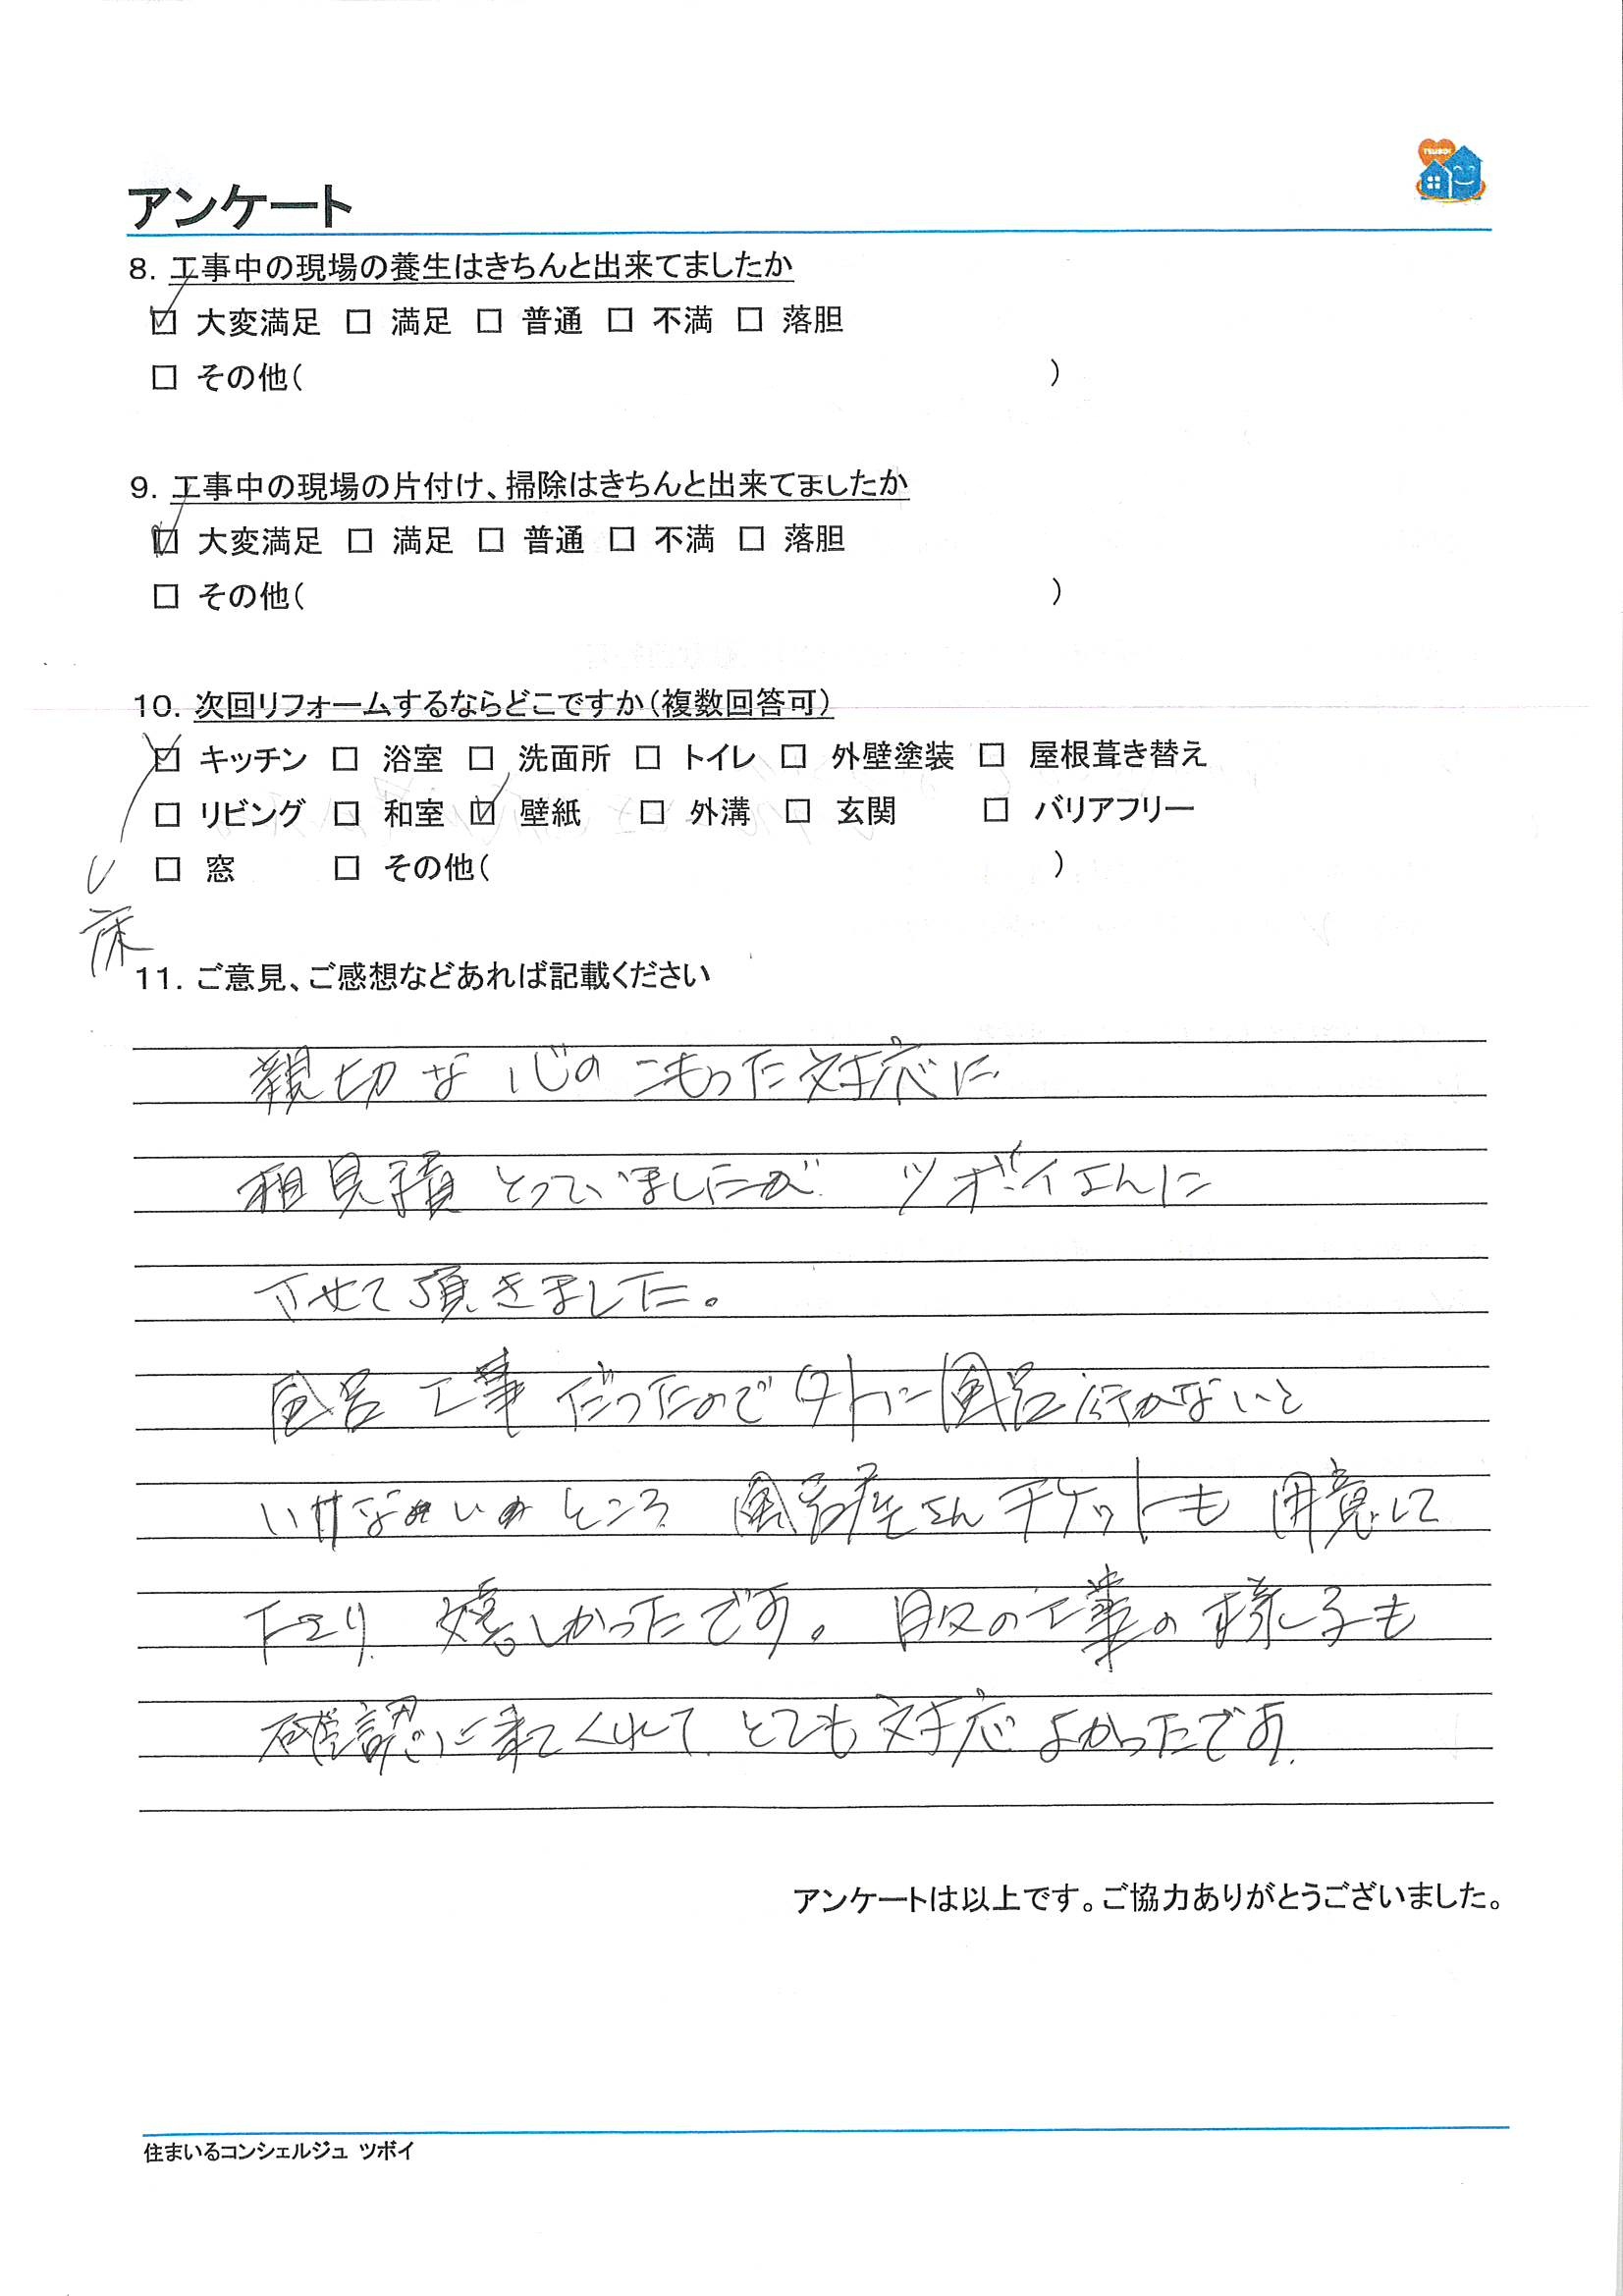 TSUBOI
アンケート
8. 工事中の現場の養生はきちんと出来てましたか
☑ 大変満足 □ 満足 □ 普通 □ 不満 □ 落胆
□ その他( )
9. 工事中の現場の片付け、掃除はきちんと出来てましたか
☑ 大変満足 □ 満足 □ 普通 □ 不満 □ 落胆
□ その他( )
10. 次回リフォームするならどこですか(複数回答可)
☑ キッチン □ 浴室 □ 洗面所 □ トイレ □ 外壁塗装 □ 屋根葺き替え
□ リビング □ 和室 ☑ 壁紙 □ 外溝 □ 玄関 □ バリアフリー
□ 窓 □ その他( )
床
11. ご意見、ご感想などあれば記載ください
親切な心のこもった対応に
相見積とっていましたが ツボイさんに
させて頂きました。
風呂工事だったので外に風呂行かないと
いけないところ 風呂屋さんチケットも用意して
下さり 嬉しかったです。 の工事の様子も
に来てくれて とても対応よかったです。
アンケートは以上です。ご協力ありがとうございました。
住まいるコンシェルジュ ツボイ